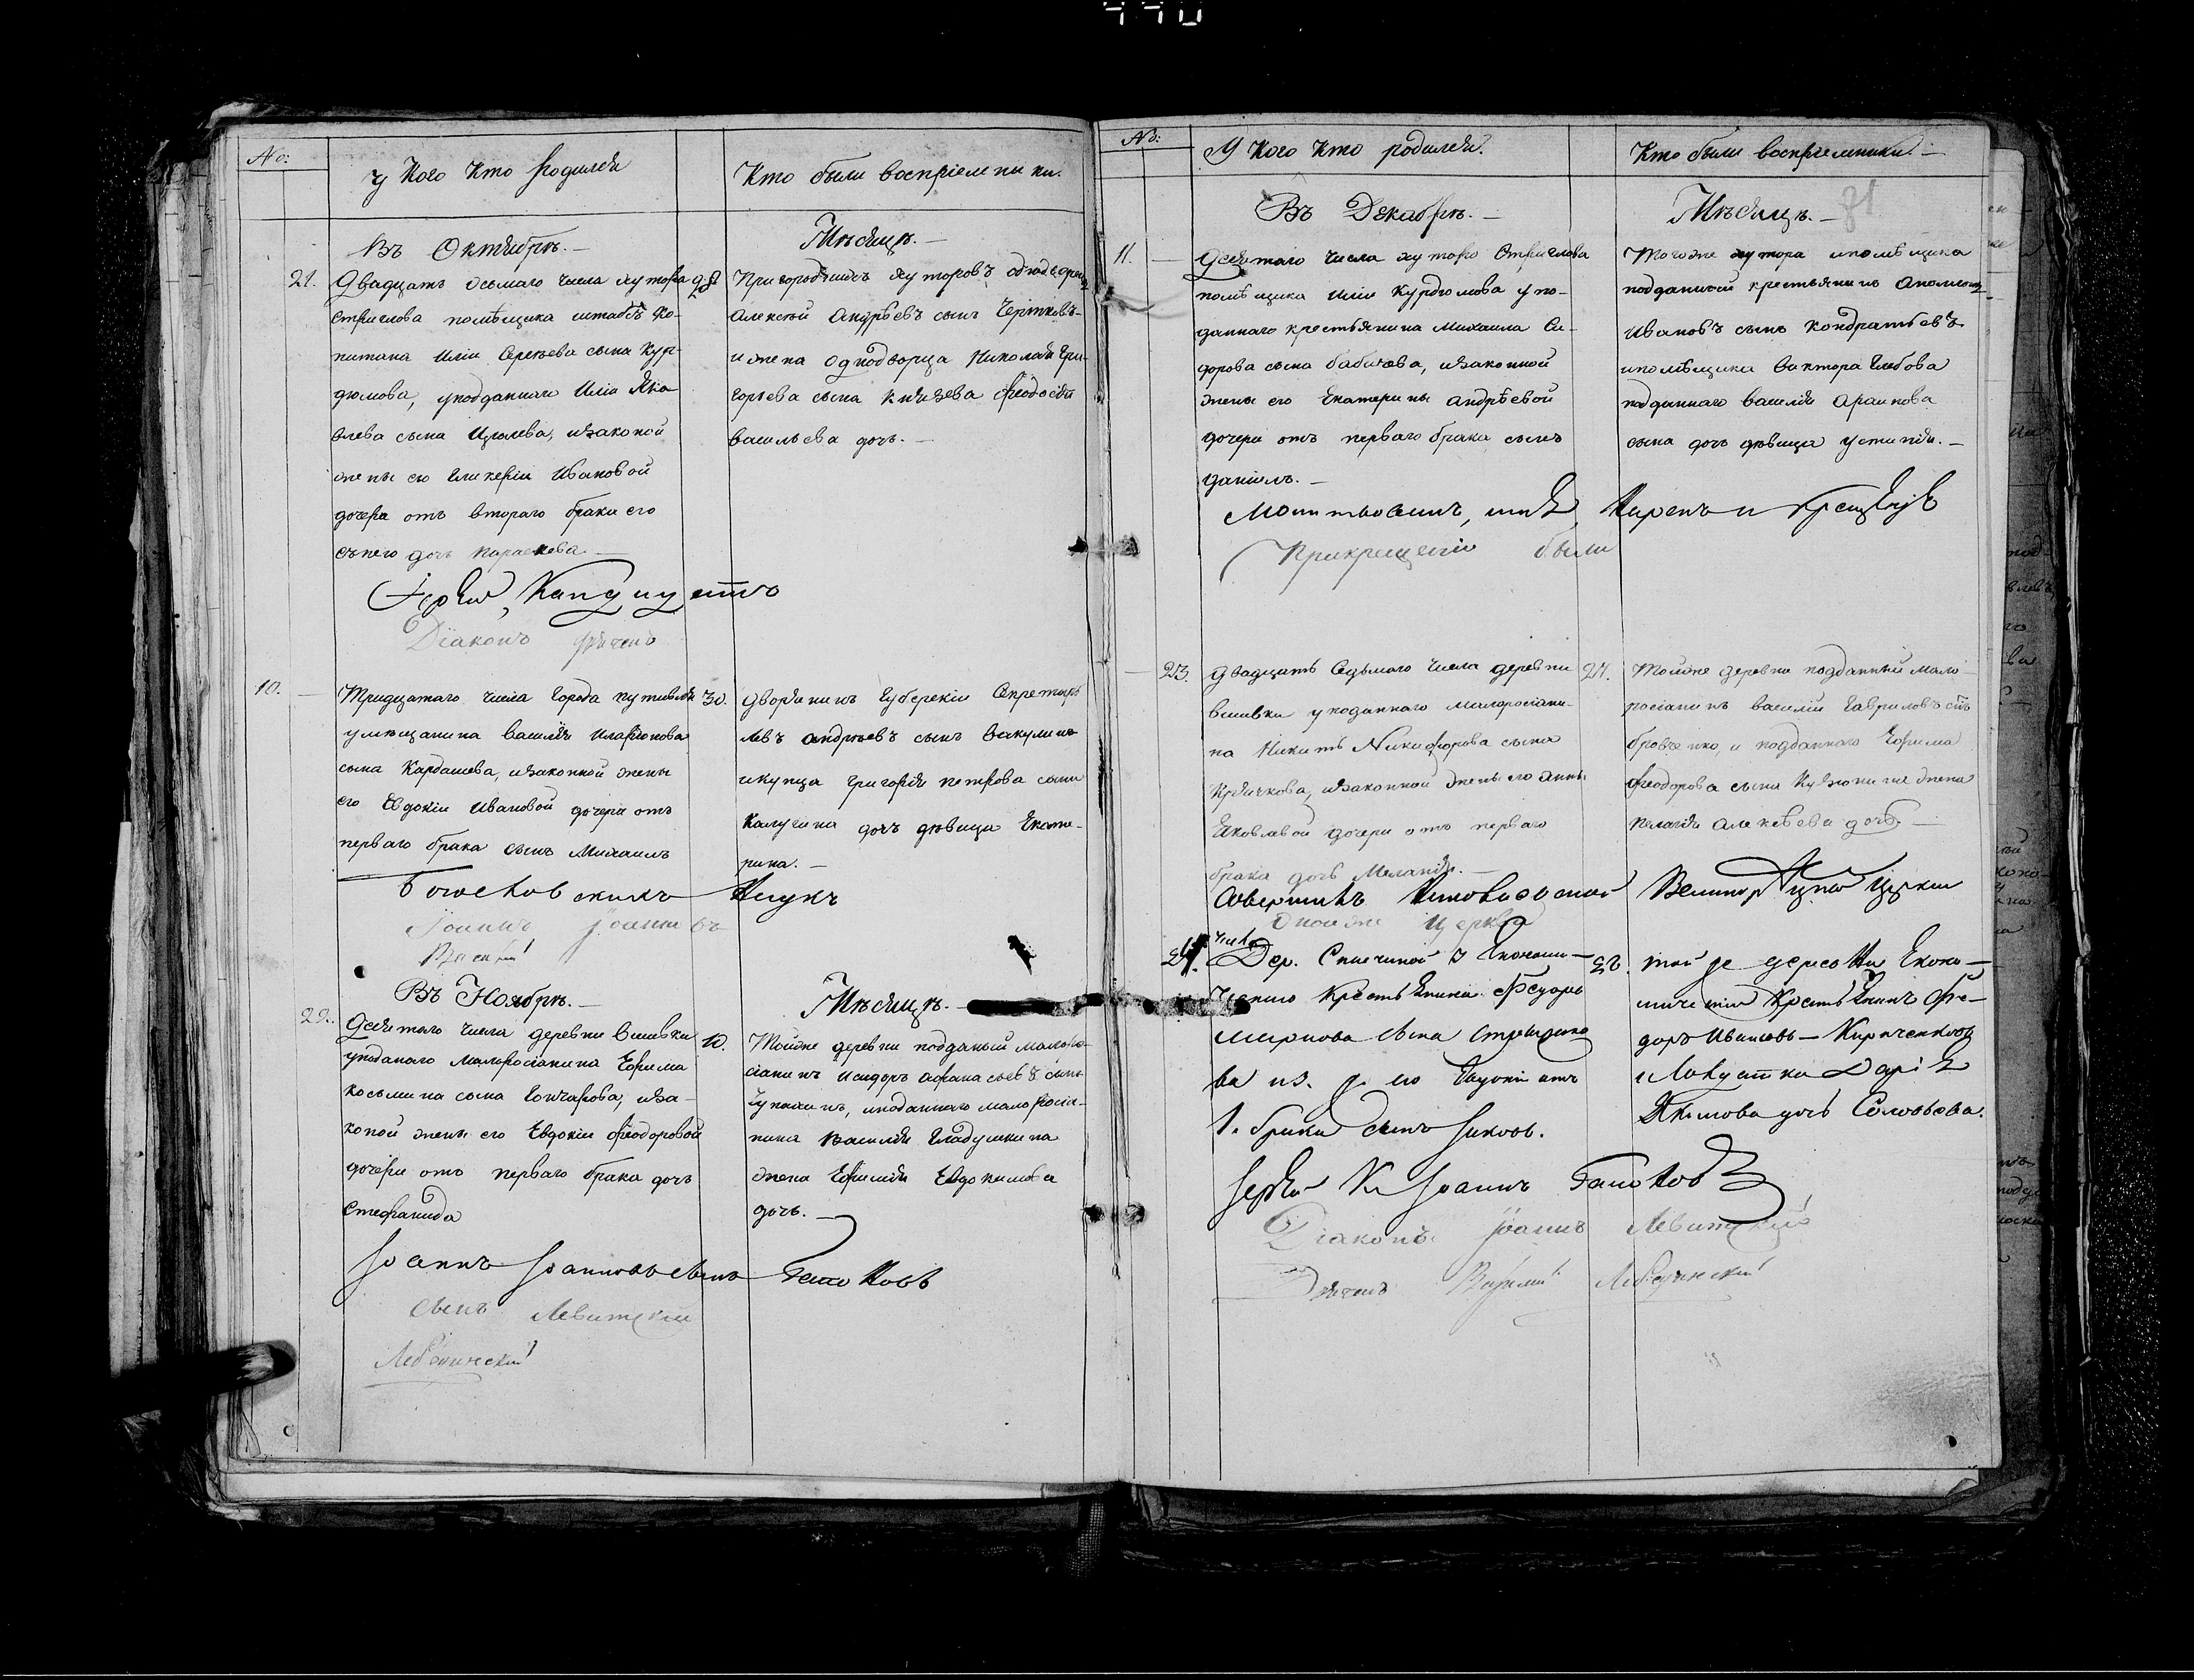 No:
У Кого Кто Родился
Кто были воспрiемники.
Въ Октябрѣ. —
Мѣсяцѣ. —
21.
Двадцать осьмаго числа хутора
Стриглова помѣщика штабсъ Ка-
питана Илiи Сергѣева сына Кур-
дюмова, уподданнаго Илiи Яко-
влева сына Изолева, изаконой
жены его Гликерiи Ивановой
дочери отъ втораго брака его
съ нею дочь параскева
28
Пригороднихъ хуторовъ однодворецъ
Алексѣй Андрѣевъ сынъ Чертковъ
и жена Однодворца Николая Гри-
горьева сына Князева Феодосiя
васильева дочь. —
Iерей, Кандидатъ
Дiаконъ Дьячекъ
10. —
Тридцатаго числа Города путивля
умѣщанина Василiя Иларiонова
сына Кардашева, изаконной жены
его Евдокiи Ивановой дочери отъ
перваго брака сынъ Михаилъ
30.
Дворянинъ Губернскiй Секретарь
Левъ андрѣевъ сынъ Вакулинъ
икупца Григорiя петрова сына
Калугина дочь дѣвица Екате-
рина. —
Богословскихъ Наукъ
Iоаннъ Iоанновъ
Василiй
Въ Ноябрѣ. —
Мѣсяцѣ. —
22.
Десятаго числа деревни Вшивки
уподанаго Малоросiянина Ефима
косьмина сына Гончарова, иза-
коной жены его Евдокiи Феодоровой
дочери отъ перваго брака дочь
Стефанида
10.
Тойже деревни подданый малоро-
сiянинъ Исидоръ Афанасьевъ сынъ
Чупахинъ, иподаннаго малоросiя-
нина Василiя Гладушкина
жена Ефимiя Евдокимова
дочь. —
Iоаннъ Iоанновъ сынъ Галковъ
сынъ Левитскiй
Лебединскiй
No:
У Кого Кто родился.
Кто были воспрiемники. —
Въ Декабрѣ. —
Мѣсяцѣ. —
11. —
Десятаго числа хутора Стриглова
помѣщика Илiи Курдюмова упо-
даннаго крестьянина Михаила Си-
дорова сына бабичева, изаконной
жены его Екатерины андрѣевой
дочери отъ перваго брака сынъ
Данiилъ. —
Тогоже хутора ипомѣщика
подданный крестьянинъ
Ивановъ сынъ Кондратьевъ
ипомѣщика Виктора Глебова
подданнаго василiя
сына дочь дѣвица устинiя. —
Молитвовалъ, имя Нарекъ и Крещенiе
Прикрещенiи были
23.
Двадцать Седьмаго числа деревни
вшивки уподаннаго Малоросiяни-
на Никиты Никифорова сына
Крячкова, изаконной жены его анны
Яковлевой дочери отъ перваго
брака дочь Меланiя. —
27.
Тойже деревни подданный мало-
росiянинъ василiй Гавриловъ сынъ
бровченко, и подданнаго Ефима
Феодорова сына жена
пелагiя алексѣева дочь —
Совершилъ Великор
Тояже Церкви
числа
Дер. Економи-
ческаго Крестьянина Федора
Миронова сына
ва из. ж. его Евдокiи отъ
1. брака сынъ Iаковъ.
той же деревни Еконо-
мическiй Крестьянинъ Фе-
доръ Ивановъ —
Дарiя
Якимова дочь Соловьева.
Iерей К. Iоаннъ Галковъ
Дiаконъ Iоаннъ Левитскiй
Дьячекъ Василiй Лебединскiй